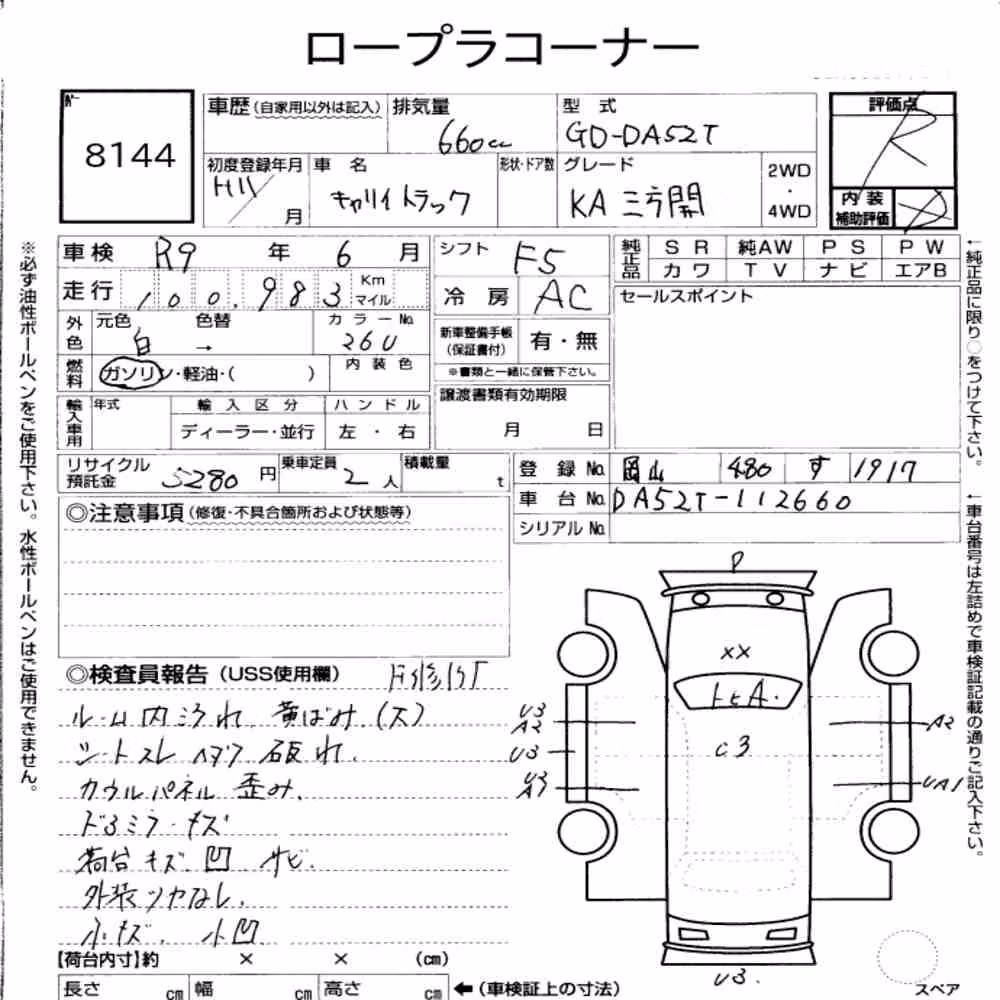 ロープラコーナー
8144
車歴(自家用以外は記入)
排気量
660cc
型式
GD-DA52T
評価点
R
初度登録年月
H11
月
車名
キャリイトラック
形状・ドア数
グレード
KA 三方開
2WD
・
4WD
内装
補助評価
D
車検 R9 年 6 月
走行 100,983 Km マイル
外色
元色 白 色替 →
カラーNo 26U
燃料
ガソリン・軽油・( )
内装色
輸入車用
年式
輸入区分
ハンドル
ディーラー・並行
左・右
シフト F5
冷房 AC
新車整備手帳
(保証書付)
有・無
※書類と一緒に保管下さい。
譲渡書類有効期限
月 日
純正品
SR 純AW PS PW
カワ TV ナビ エアB
セールスポイント
リサイクル
預託金 5280 円
乗車定員 2 人
積載量 t
登録No 岡山 480 す 1917
車台No DA52T-112660
シリアルNo
◎注意事項(修復・不具合箇所および状態等)
◎検査員報告(USS使用欄)
ルーム内ヨゴレ 黄ばみ(大)
シートスレ ヘタリ 破れ.
カウルパネル 歪み.
ドアミラーキズ
荷台キズ.凹 サビ.
外装ツヤなし.
小キズ 小凹
P
××
トビA.
C3
U3
A2
U3
U3
A2
UA1
U3.
【荷台内寸】約 × × (cm)
長さ cm 幅 cm 高さ cm ←(車検証上の寸法)
スペア
※必ず油性ボールペンをご使用下さい。水性ボールペンはご使用できません。
←純正品に限り○をつけて下さい。
←車台番号は左詰めで車検証記載の通りご記入下さい。